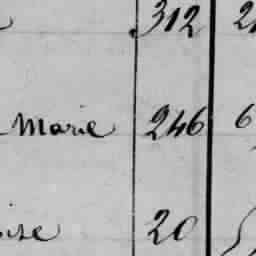 312
Marie 246 6
20